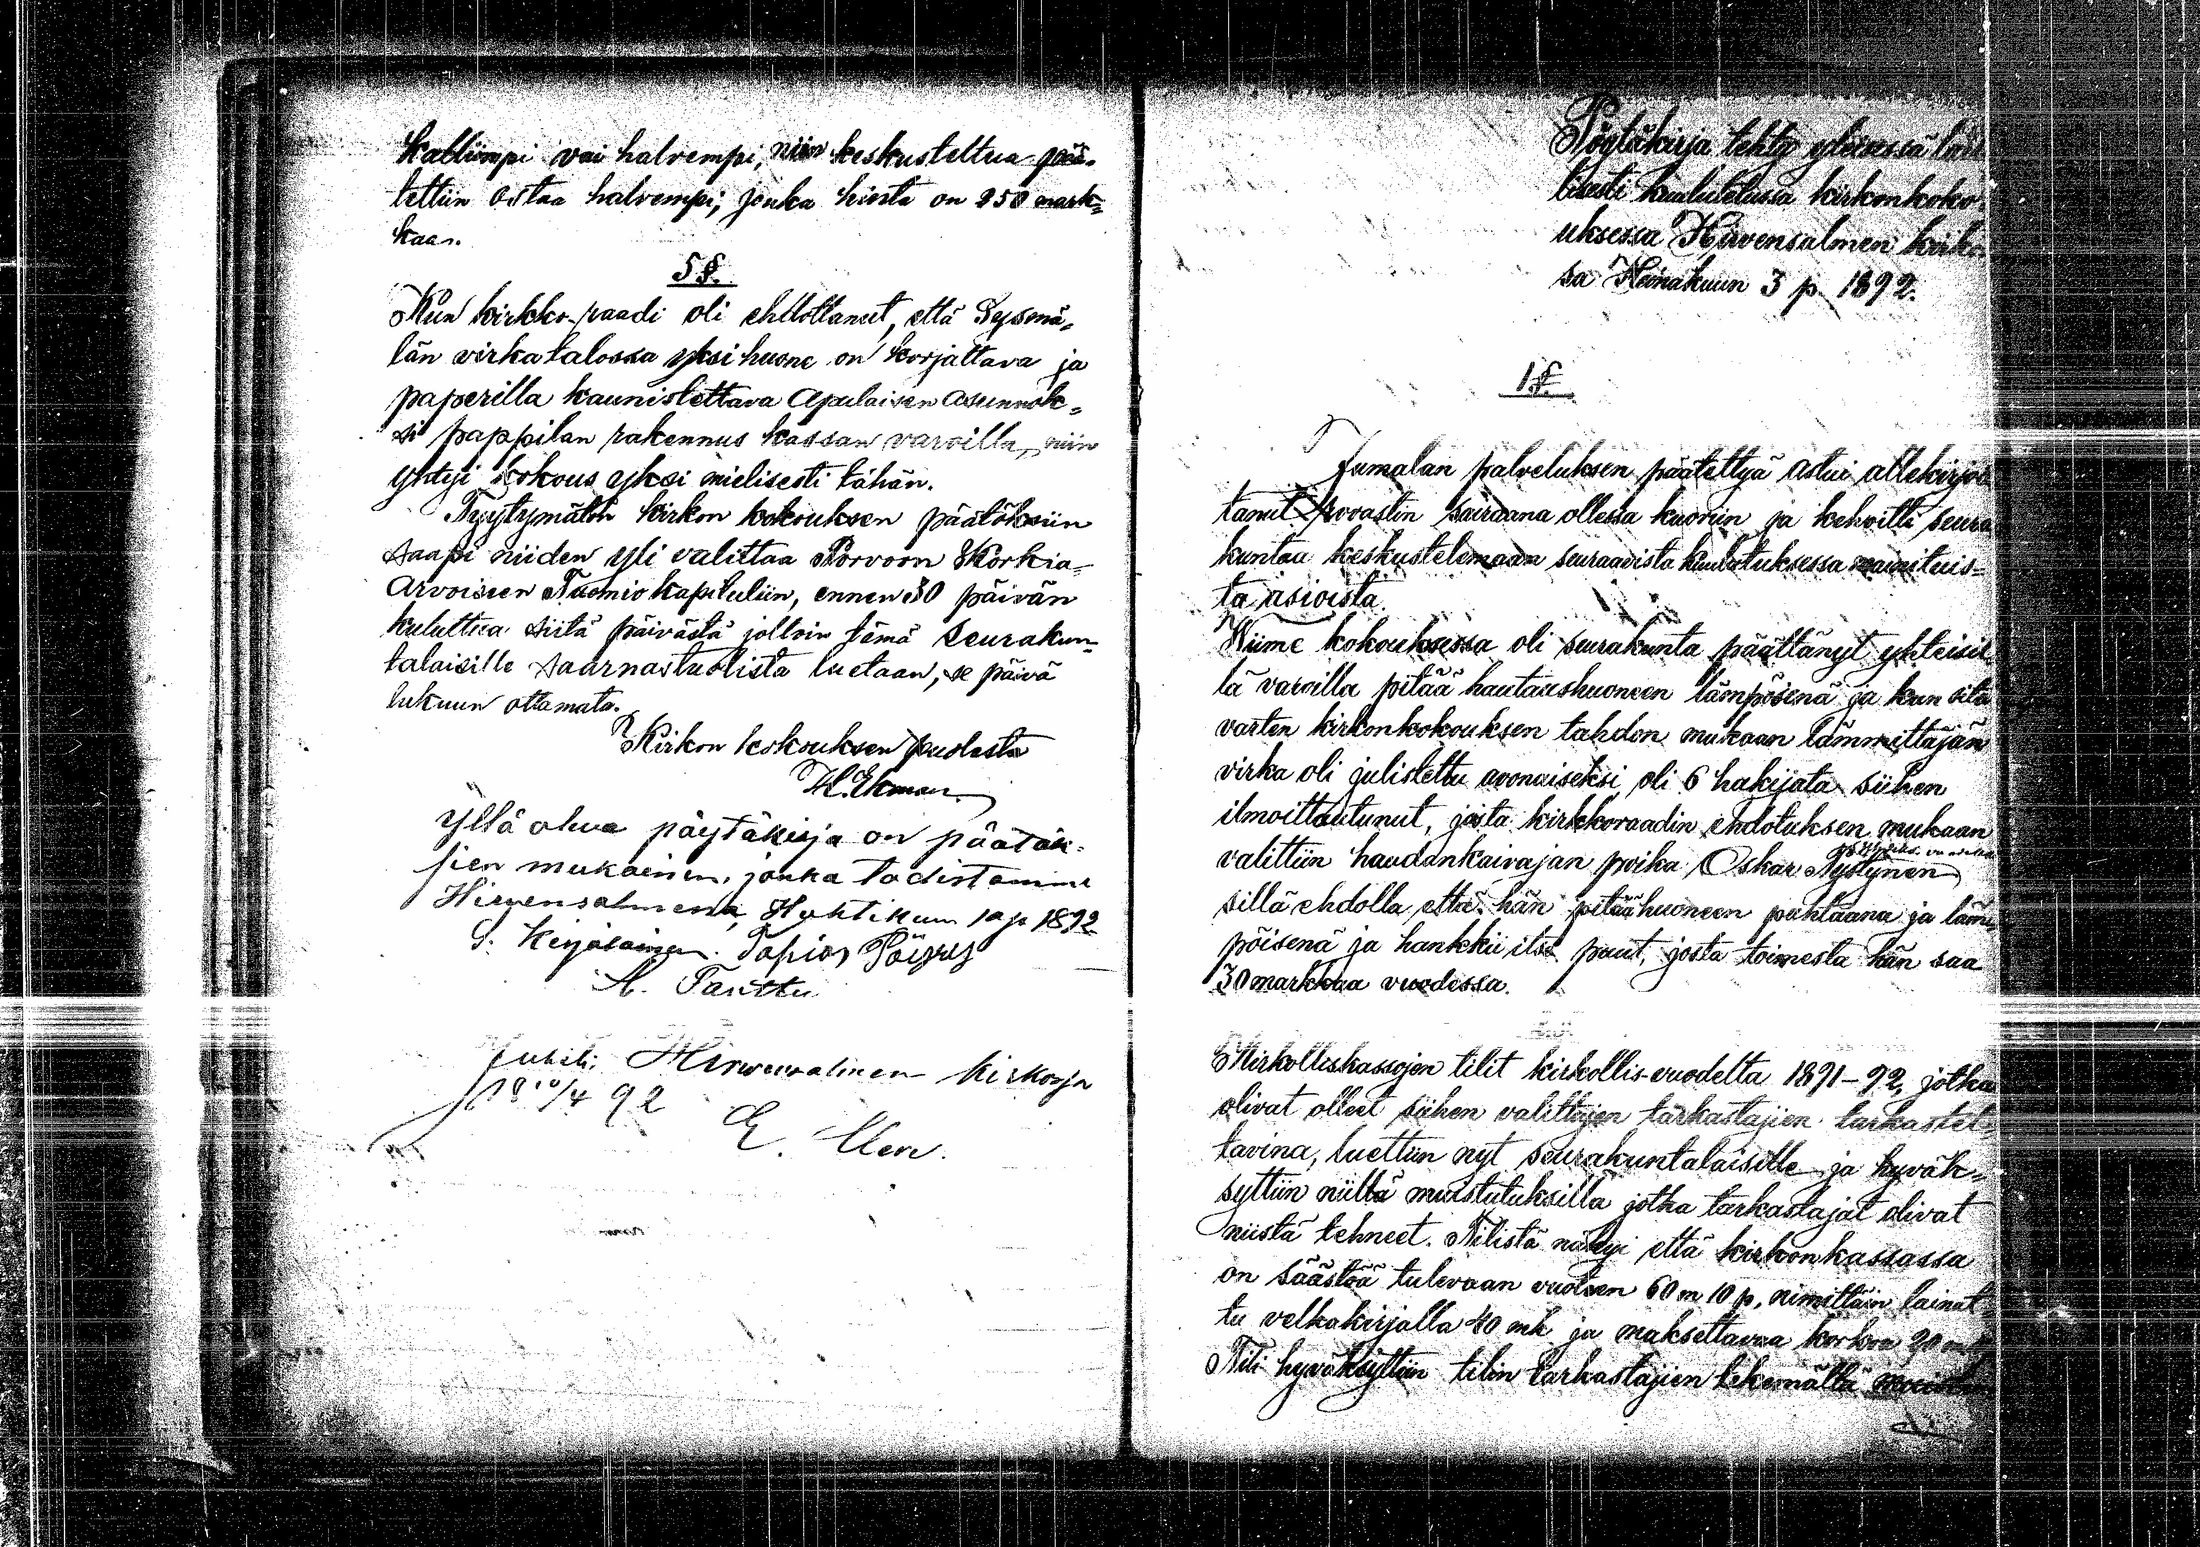 kalliimpi vai halvempi, niin keskusteltua pää-
tettiin ostaa halvempi, jonka hinta on 250 mark-
kaa.
5 §.
Kun kirkko-raadi oli ehdottanut, että Sysmä-
län virkatalossa yksi huone on korjattava ja
paperilla kaunistettava Apulaisen asunnok-
si pappilan rakennus kassan varoilla, niin
yhtyi kokous yksi mielisesti tähän.
Tyytymätön kirkon kokouksen päätöksiin
saapi niiden yli valittaa Porvoon Korkia-
arvoiseen Tuomiokapituliin, ennen 30 päivän
kuluttua siitä päivästä jolloin tämä seurakun-
talaisille saarnastuolista luetaan, se päivä
lukuun ottamata.
Kirkon kokouksen puolesta
K. Ekman.
Yllä oleva pöytäkirja on päätök-
sien mukainen, jonka todistamme
Hirvensalmena, Huhtikuun 10 p 1892
S. Kirjalainen. Topias Pöyry
A. Tanttu
Julist; Hirvensalmen kirkosja
18 10/4 92
E. Alen.
Pöytäkirja tehty yleisessä lail
lisesti kuulutetussa kirkonkoko-
uksessa Hirvensalmen kirkos-
sa Heinäkuun 3 p. 1892.
1 §.
Jumalan palveluksen päätettyä astui allekirjoi
tanut Provastin sairaana ollessa kuoriin ja kehoitti seura
kuntaa keskustelemaan seuraavista kuulutuksessa mainituis-
ta asioista.
Wiime kokouksessa oli seurakunta päättänyt yhteisil
lä varoilla pitää hautaushuoneen lämpösenä ja kun sitä
varten kirkonkokouksen tahdon mukaan lämmittäjän
virka oli julistettu avonaiseksi, oli 6 hakijata siihen
ilmoittautunut, joista kirkkoraadin ehdotuksen mukaan
valittiin haudankaivajan poika Oskar Tystynen
sillä ehdolla että hän pitää huoneen puhtaana ja läm-
pöisenä ja hankkii itse puut, josta toimesta hän saa
30 markkaa vuodessa.
2 §.
Kirkolliskassojen tilit kirkollis-vuodelta 1891-92, jotka
olivat olleet siihen valittujen tarkastajien tarkastet-
tavina, luettiin nyt seurakuntalaisille ja hyväk-
syttiin niillä muistutuksilla jotka tarkastajat olivat
niistä tehneet. Tilistä näkyi että kirkonkassassa
on säästöä tulevaan vuoteen 60 m 10 p, nimittäin lainat
tu velkakirjalla 40 mk ja maksettavaa korkoa 20 m
Tili hyväksyttiin tilin tarkastajien tekemällä